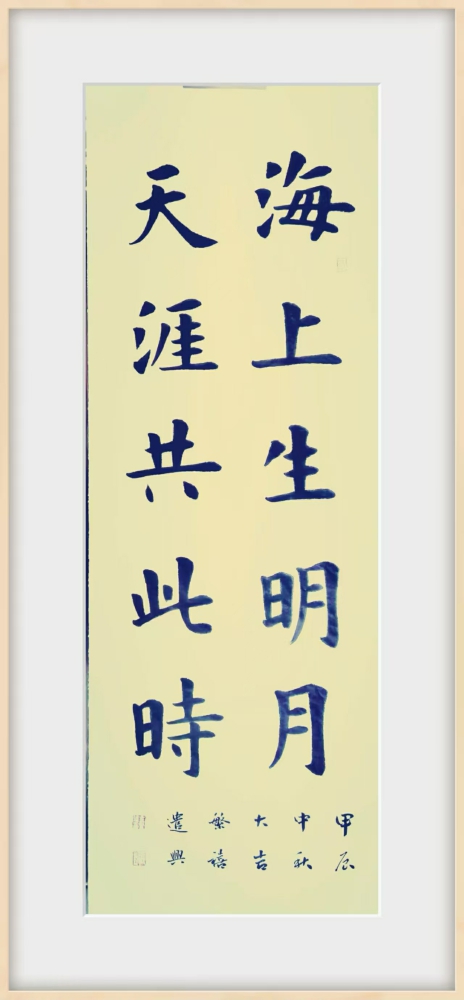 海上生明月
天涯共此時
甲辰
中秋
大吉
繁禧
遣興